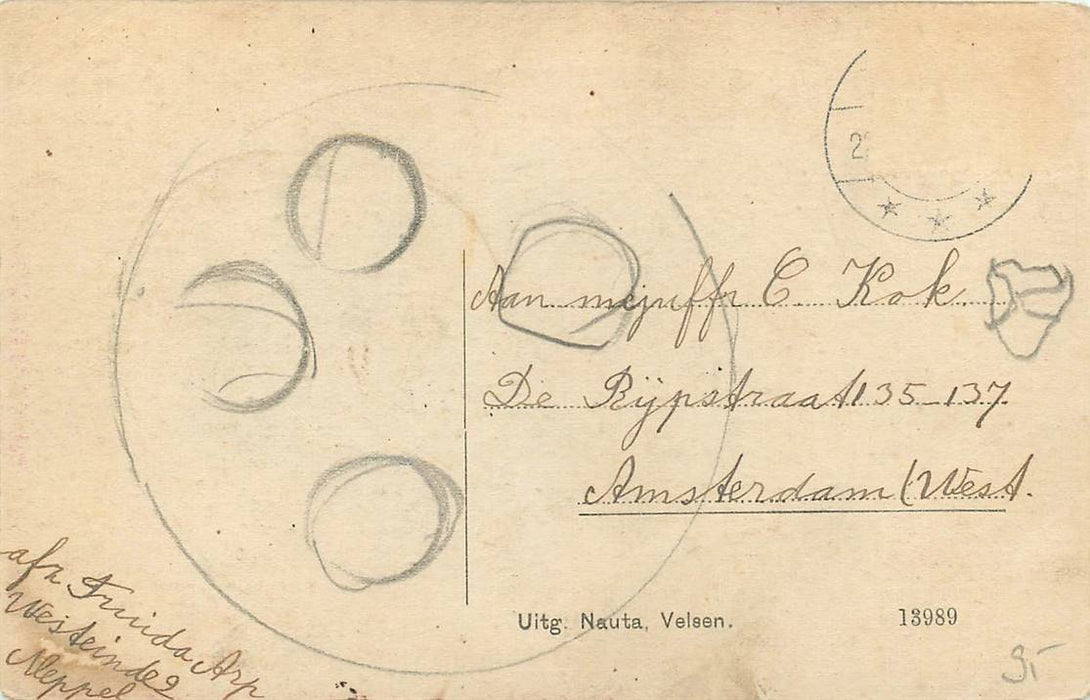 2
Aan mejuffr C. Kok.
De Rijpstraat 135-137.
Amsterdam (West.
afz Truida Arp
Westeinde 2
Meppel
Uitg. Nauta, Velsen.
13989